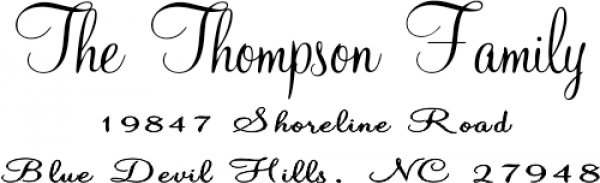 The Thompson Family
19847 Shoreline Road
Blue Devil Hills, NC 27948